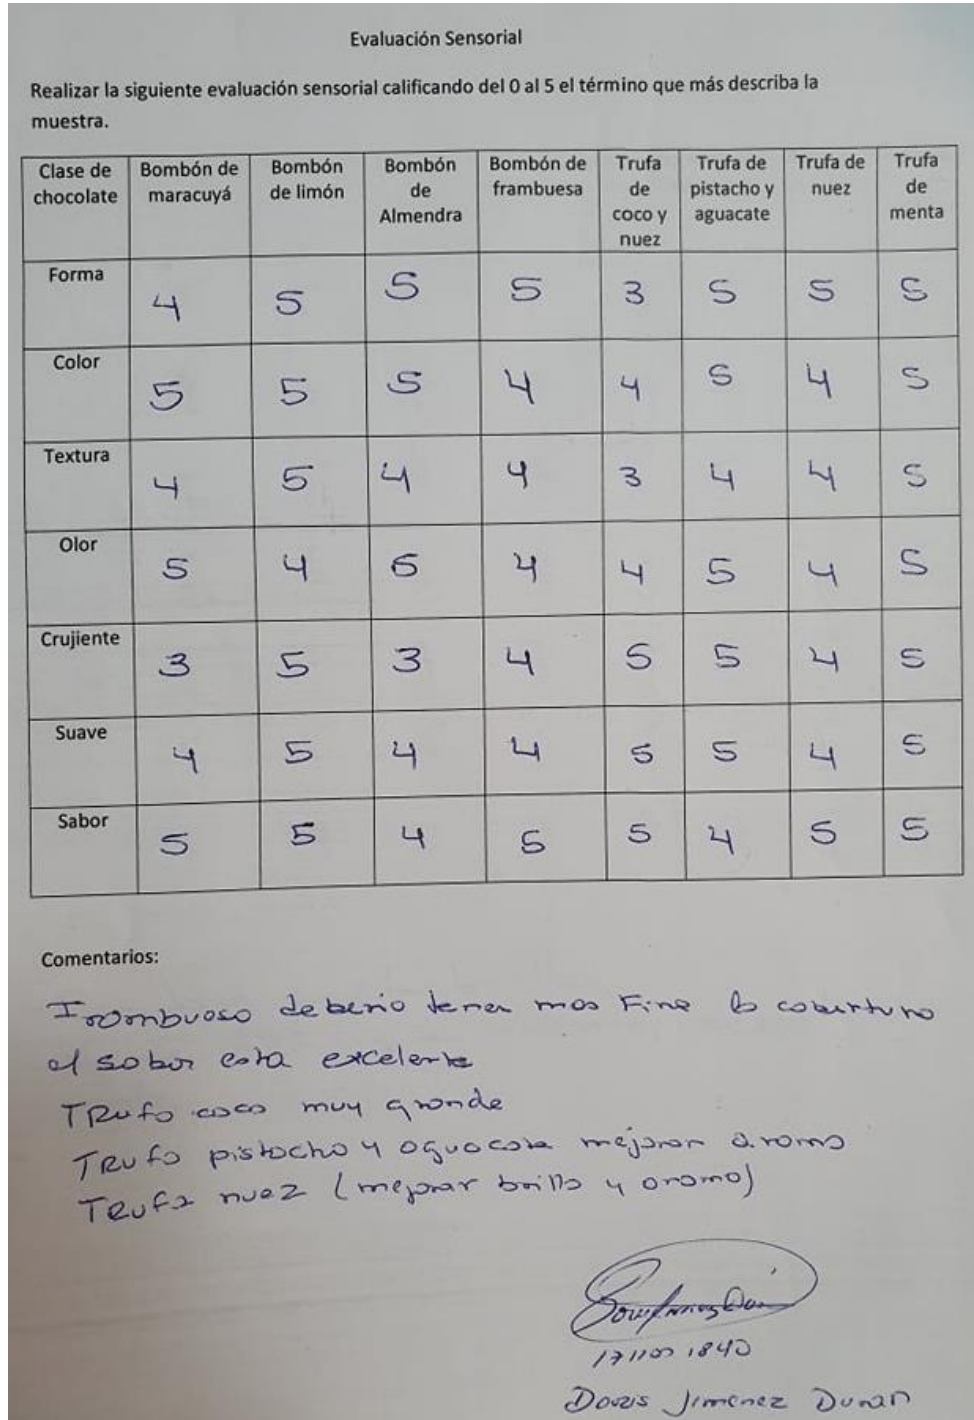 Evaluación Sensorial
Realizar la siguiente evaluación sensorial calificando del 0 al 5 el término que más describa la
muestra.
Clase de chocolate | Bombón de maracuyá | Bombón de limón | Bombón de Almendra | Bombón de frambuesa | Trufa de coco y nuez | Trufa de pistacho y aguacate | Trufa de nuez | Trufa de menta
Forma | 4 | 5 | 5 | 5 | 3 | 5 | 5 | 5
Color | 5 | 5 | 5 | 4 | 4 | 5 | 4 | 5
Textura | 4 | 5 | 4 | 4 | 3 | 4 | 4 | 5
Olor | 5 | 4 | 5 | 4 | 4 | 5 | 4 | 5
Crujiente | 3 | 5 | 3 | 4 | 5 | 5 | 4 | 5
Suave | 4 | 5 | 4 | 4 | 5 | 5 | 4 | 5
Sabor | 5 | 5 | 4 | 5 | 5 | 4 | 5 | 5
Comentarios:
deberia tener mas Fina la cobertura
el sabor esta excelente
TRufa coco muy grande
TRufa pistacho y aguacate mejorar aroma
TRufa nuez (mejorar brillo y aroma)
Doris Jimenez Duran